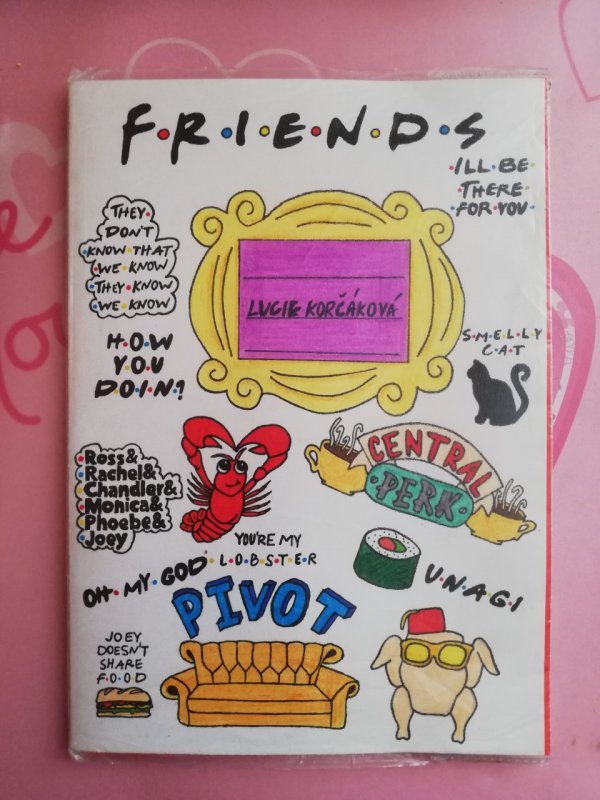 F·R·I·E·N·D·S
·I'LL·BE·
·THERE·
·FOR·YOU·
THEY·
DON'T
·KNOW·THAT
·WE·KNOW
·THEY·KNOW
·WE·KNOW
LUCIE KORČÁKOVÁ
H·O·W
Y·O·U
D·O·I·N·?
S·M·E·L·L·Y
C·A·T
·Ross&
·Rachel&
·Chandler&
·Monica&
·Phoebe&
·Joey
CENTRAL
PERK
YOU'RE MY
L·O·B·S·T·E·R
OH·MY·GOD·
U·N·A·G·I
PIVOT
JOEY
DOESN'T
SHARE
F·O·O·D